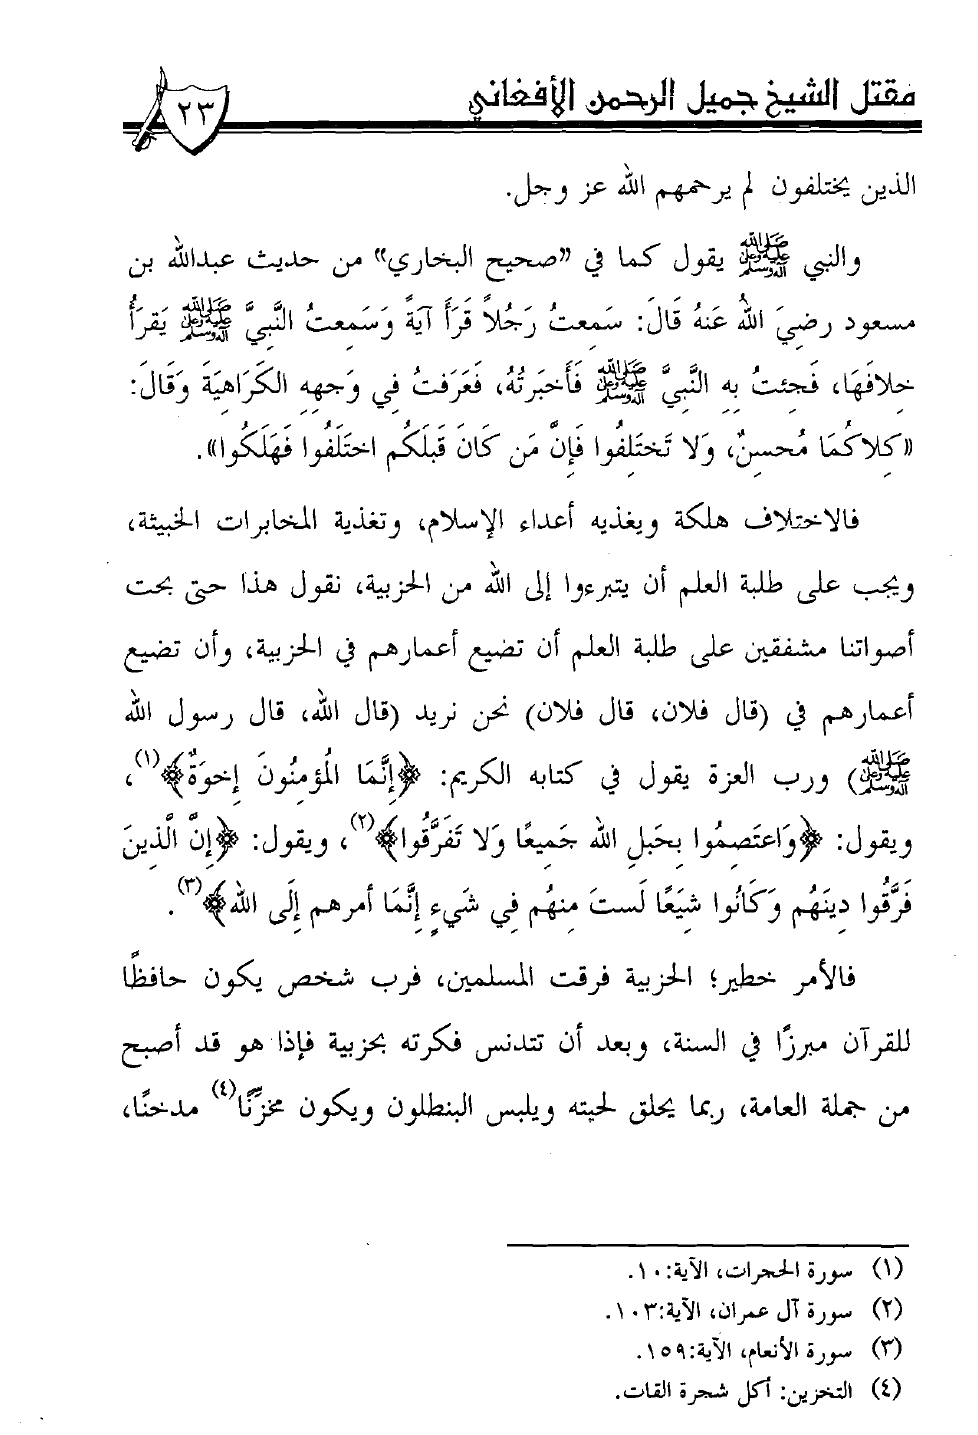 مقتل الشيخ جميل الرحمن الأفغاني
٢٣
الذين يختلفون لم يرحمهم الله عز وجل.
والنبي ﷺ يقول كما في «صحيح البخاري» من حديث عبدالله بن
مسعود رضيَ اللهُ عَنهُ قَالَ: سَمِعتُ رَجُلاً قَرَأَ آيَةً وَسَمِعتُ النَّبِيَّ ﷺ يَقرَأُ
خِلافَهَا، فَجِئتُ بِهِ النَّبِيَّ ﷺ فَأَخبَرتُهُ، فَعَرَفتُ فِي وَجهِهِ الكَرَاهِيَةَ وَقَالَ:
«كِلاكُمَا مُحسِنٌ، وَلا تَختَلِفُوا فَإِنَّ مَن كَانَ قَبلَكُم اختَلَفُوا فَهَلَكُوا».
فالاختلاف هلكة ويغذيه أعداء الإسلام، وتغذية المخابرات الخبيثة،
ويجب على طلبة العلم أن يتبرءوا إلى الله من الحزبية، نقول هذا حتى بحت
أصواتنا مشفقين على طلبة العلم أن تضيع أعمارهم في الحزبية، وأن تضيع
أعمارهم في (قال فلان، قال فلان) نحن نريد (قال الله، قال رسول الله
ﷺ) ورب العزة يقول في كتابه الكريم: ﴿إِنَّمَا المُؤمِنُونَ إِخوَةٌ﴾(١)،
ويقول: ﴿وَاعتَصِمُوا بِحَبلِ اللهِ جَمِيعًا وَلا تَفَرَّقُوا﴾(٢)، ويقول: ﴿إِنَّ الَّذِينَ
فَرَّقُوا دِينَهُم وَكَانُوا شِيَعًا لَستَ مِنهُم فِي شَيءٍ إِنَّمَا أمرهم إِلَى اللهِ﴾(٣).
فالأمر خطير؛ الحزبية فرقت المسلمين، فرب شخص يكون حافظًا
للقرآن مبرزًا في السنة، وبعد أن تتدنس فكرته بحزبية فإذا هو قد أصبح
من جملة العامة، ربما يحلق لحيته ويلبس البنطلون ويكون مخزّنًا(٤) مدخنًا،
(١) سورة الحجرات، الآية:١٠.
(٢) سورة آل عمران، الآية:١٠٣.
(٣) سورة الأنعام، الآية:١٥٩.
(٤) التخزين: أكل شجرة القات.